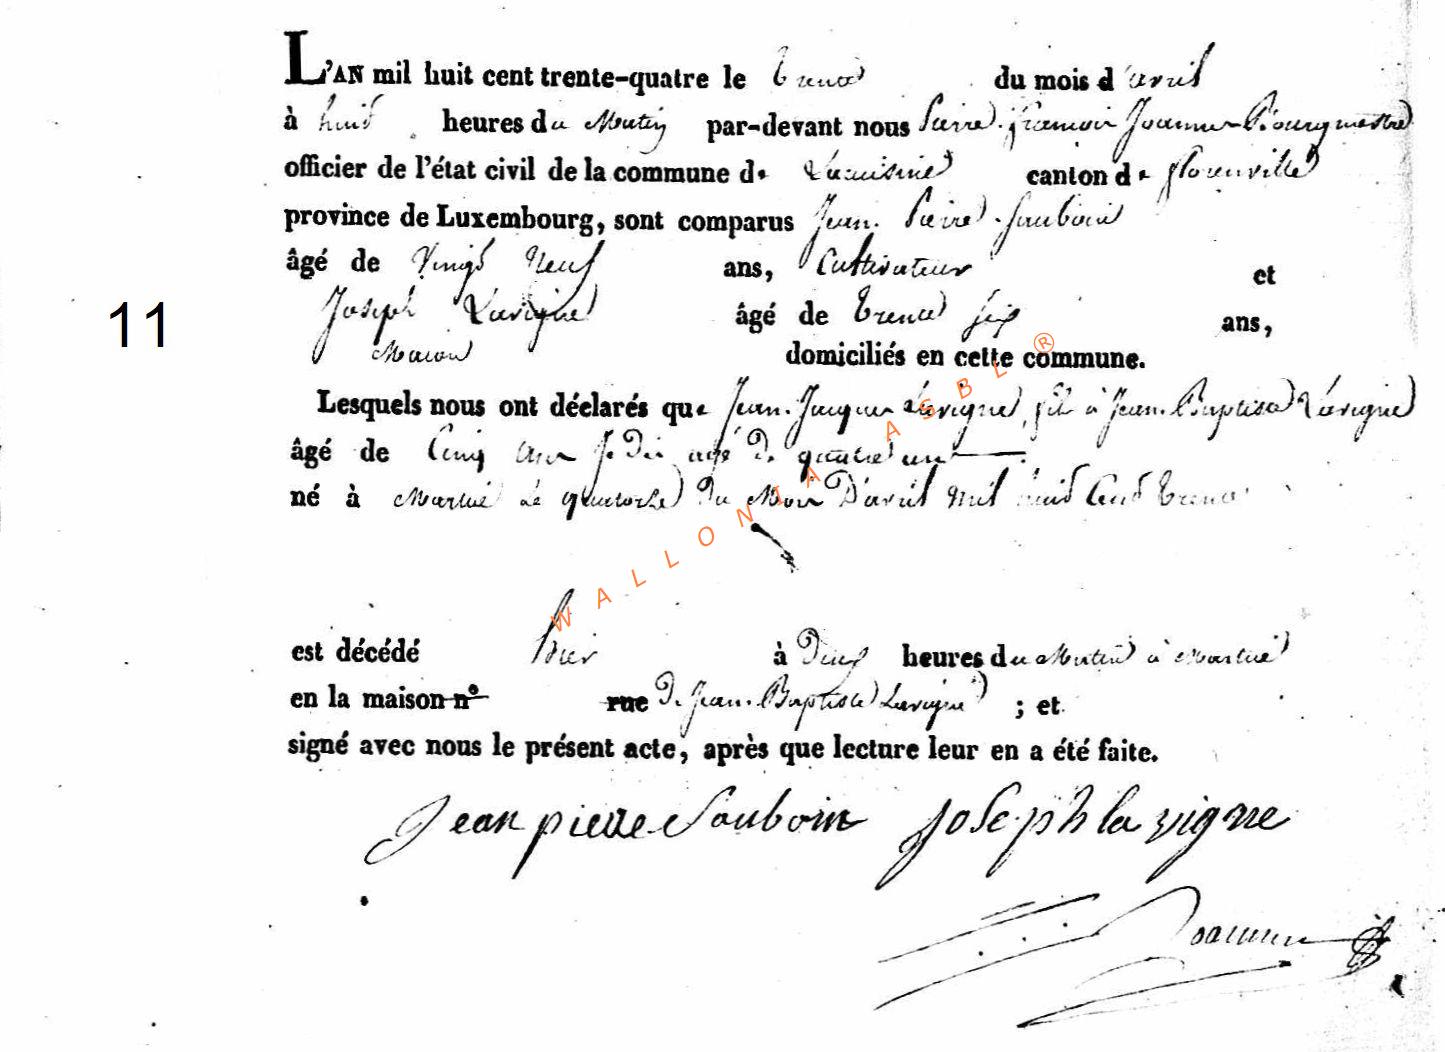 L'AN mil huit cent trente-quatre le trente du mois d'avril
à huit heures du Matin par-devant nous Pierre françois Joannes Bourgmestre
officier de l'état civil de la commune de Lacuisine canton de florenville
province de Luxembourg, sont comparus Jean Pierre Sauboin
âgé de Vingt Neuf ans, Cultivateur et
11
Joseph Lavigne âgé de trente six ans,
Macon domiciliés en cette commune.
Lesquels nous ont déclarés que Jean Jacques Lavigne, fils à Jean Baptiste Lavigne
âgé de Cinq ans Je dis agé de quatre ans
né à Martué Le quatorze du Mois D'avril Mil huit Cent trente
est décédé hier à Dix heures du Matin à Martué
en la maison n° rue De Jean Baptiste Lavigne ; et
signé avec nous le présent acte, après que lecture leur en a été faite.
Jean pierre Sauboin Joseph la vigne
Joannes
WALLONIA ASBL ®